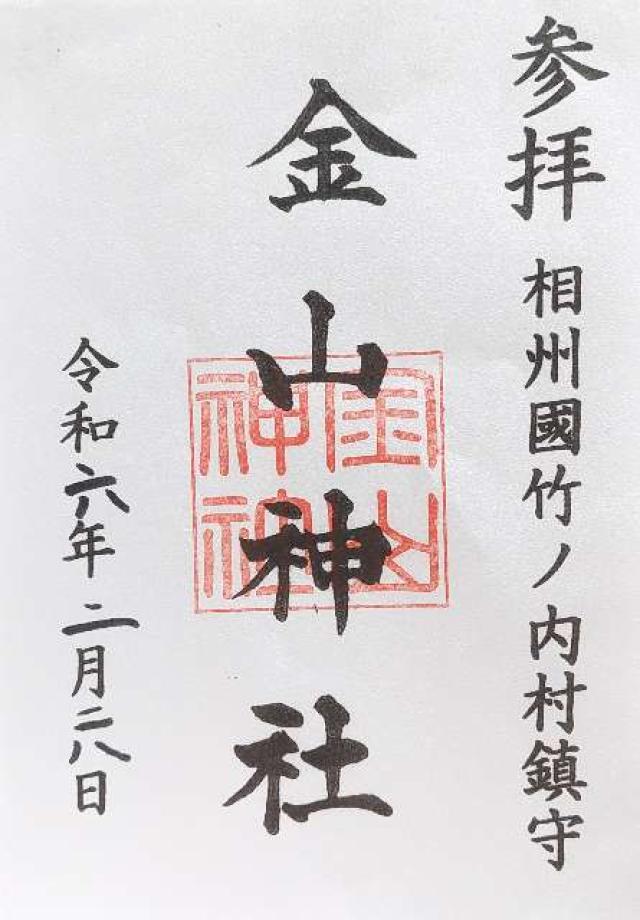 参拝
相州國竹ノ内村鎮守
金山神社
金山
神社
令和六年二月二八日